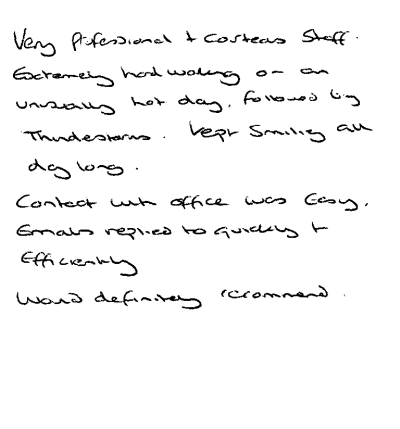 Very professional + Courteous Staff.
Extremely hard working on an
unusually hot day, followed by
Thunderstorms. Kept Smiling all
day long.
Contact with office was Easy,
Emails replied to quickly +
Efficiently
Would definitely recommend.